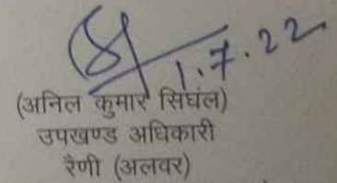 1.7.22
(अनिल कुमार सिघंल)
उपखण्ड अधिकारी
रैणी (अलवर)